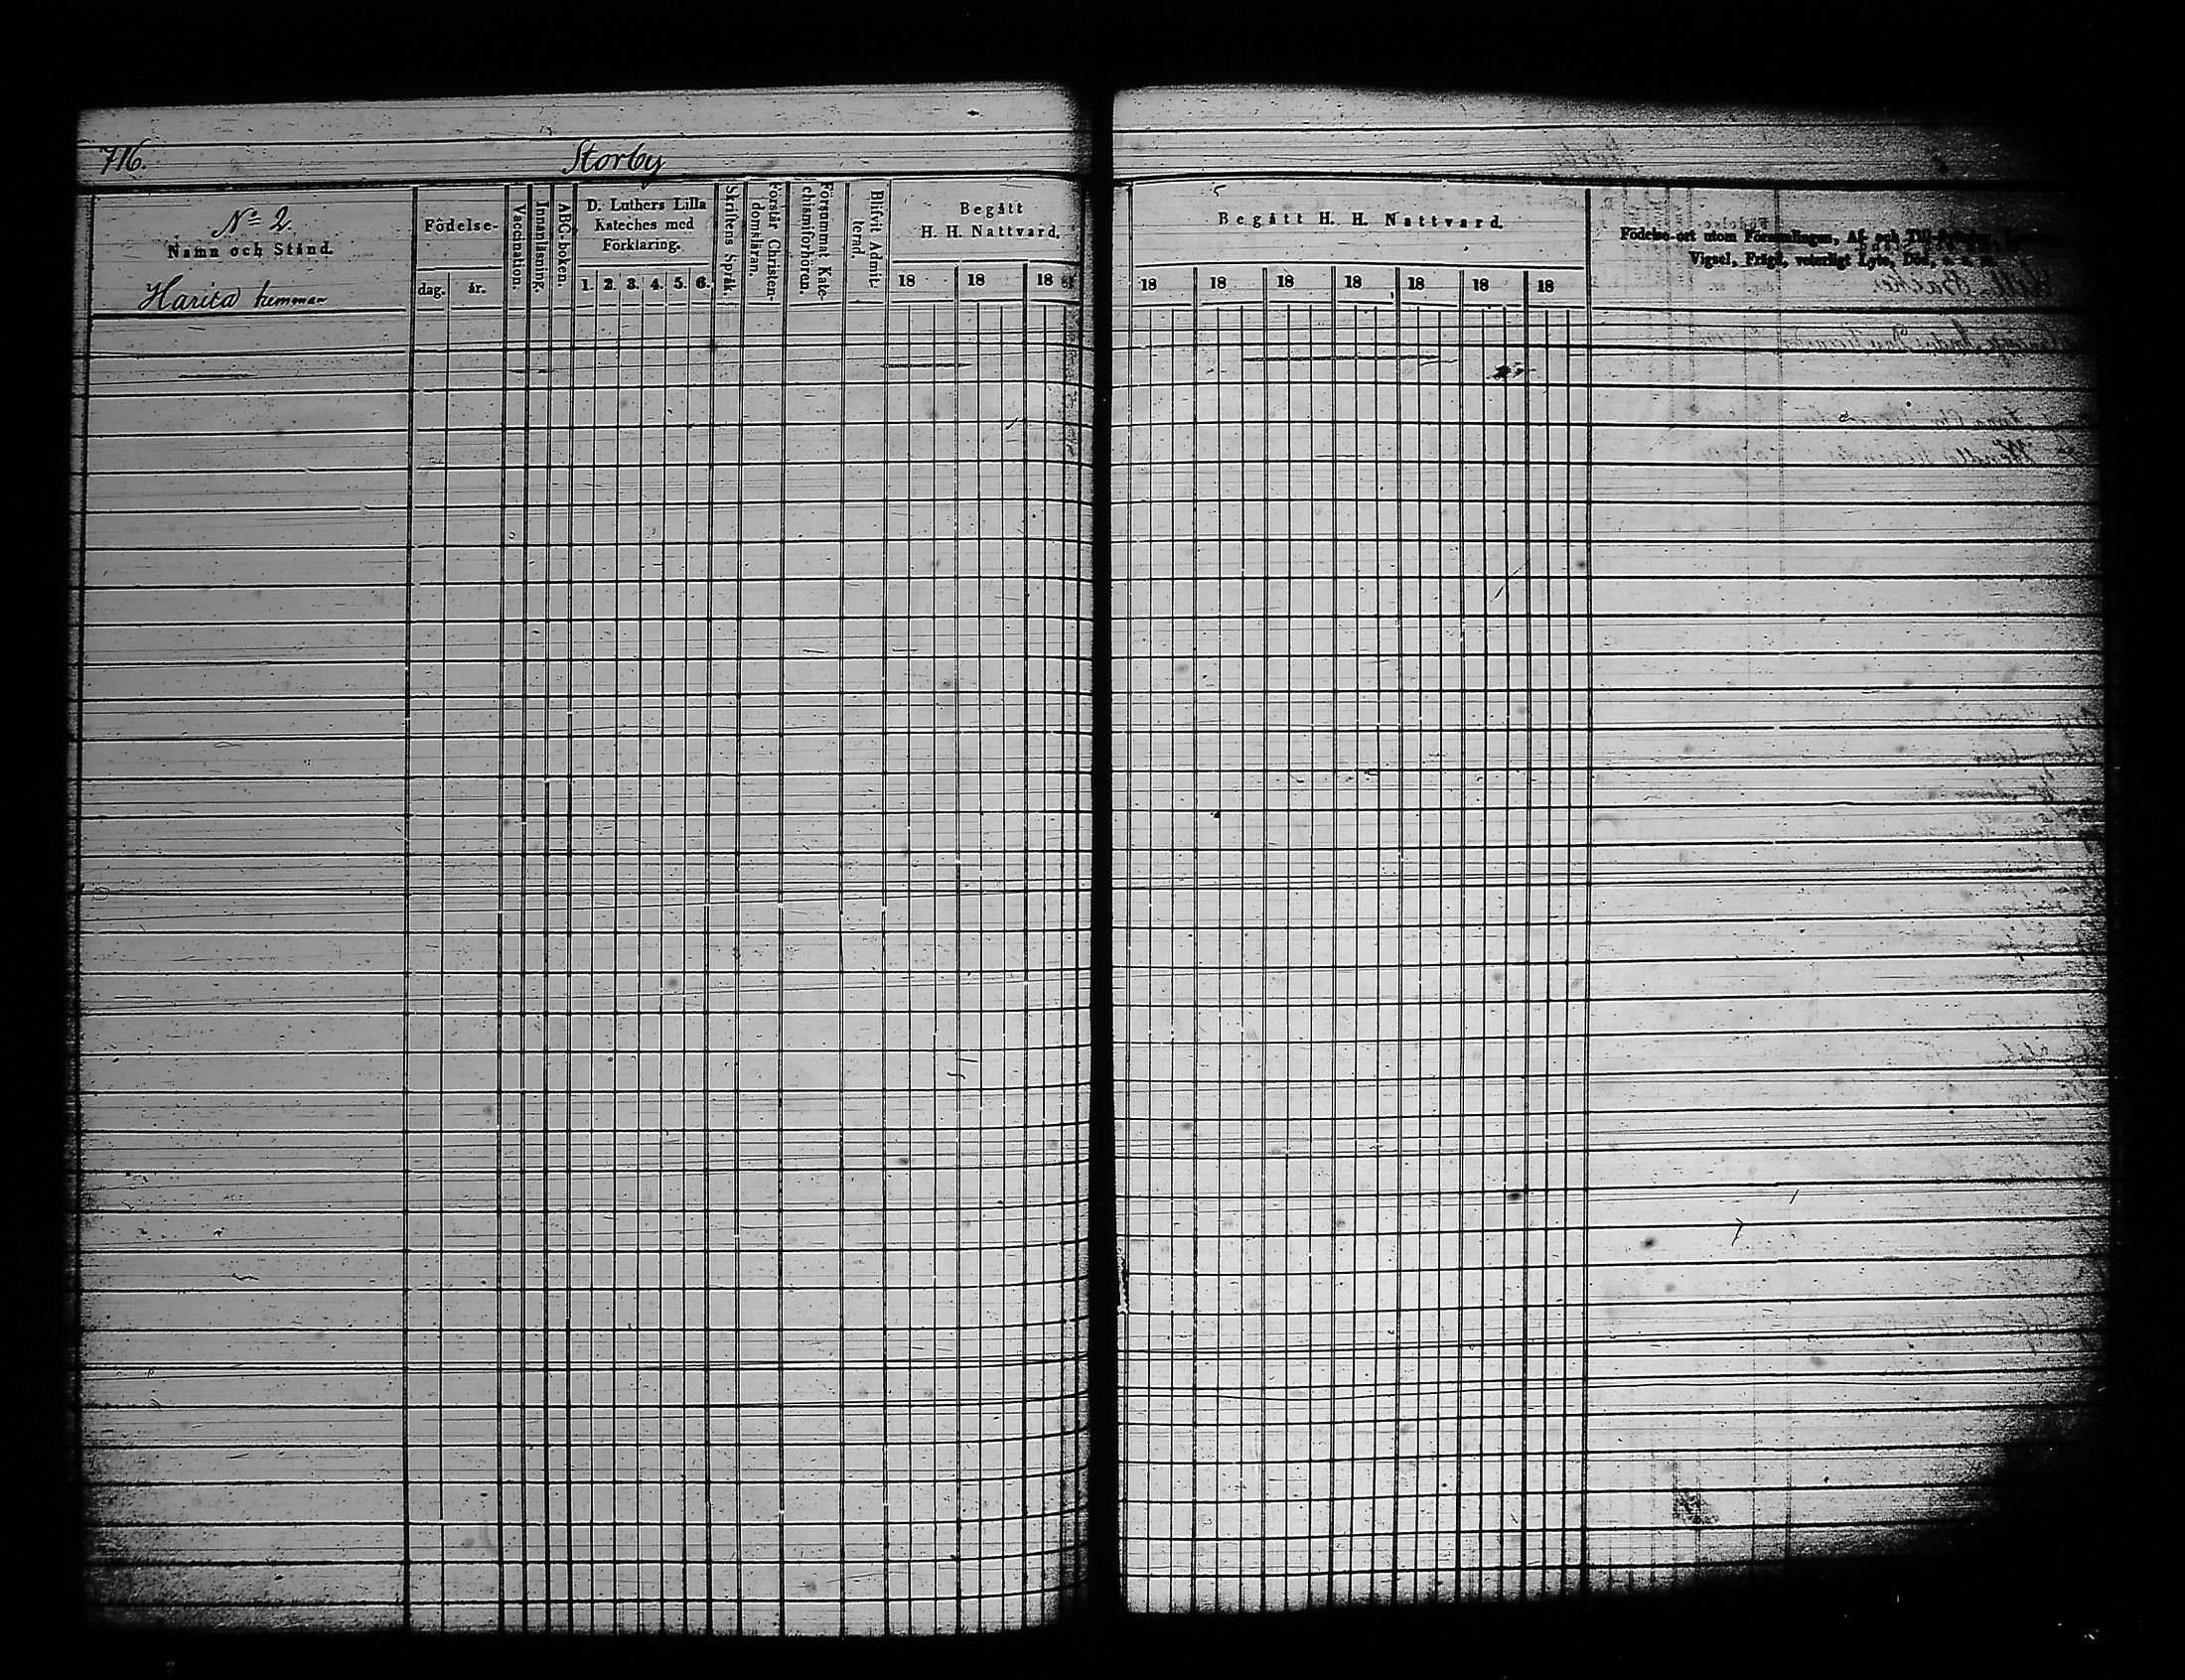 716.
Storby
Nº 2.
Namn och Stånd.
Harita hemman
Födelse-
dag.
år.
Vaccination.
Innanläsning.
ABC-boken.
D. Luthers Lilla
Kateches med
Förklaring.
1. 2. 3. 4. 5. 6.
Skriftens Språk.
Förstår Christen-
domsläran.
Försummat Kate-
chismiförhören.
Blifvit Admit-
terad.
Begått
H. H. Nattvard.
18 18 18
Begått H. H. Nattvard.
18 18 18 18 18 18 18
Födelse-ort utom Församlingen, Af- och Till-
Vigsel, Frägd, veterligt Lyte, Död,